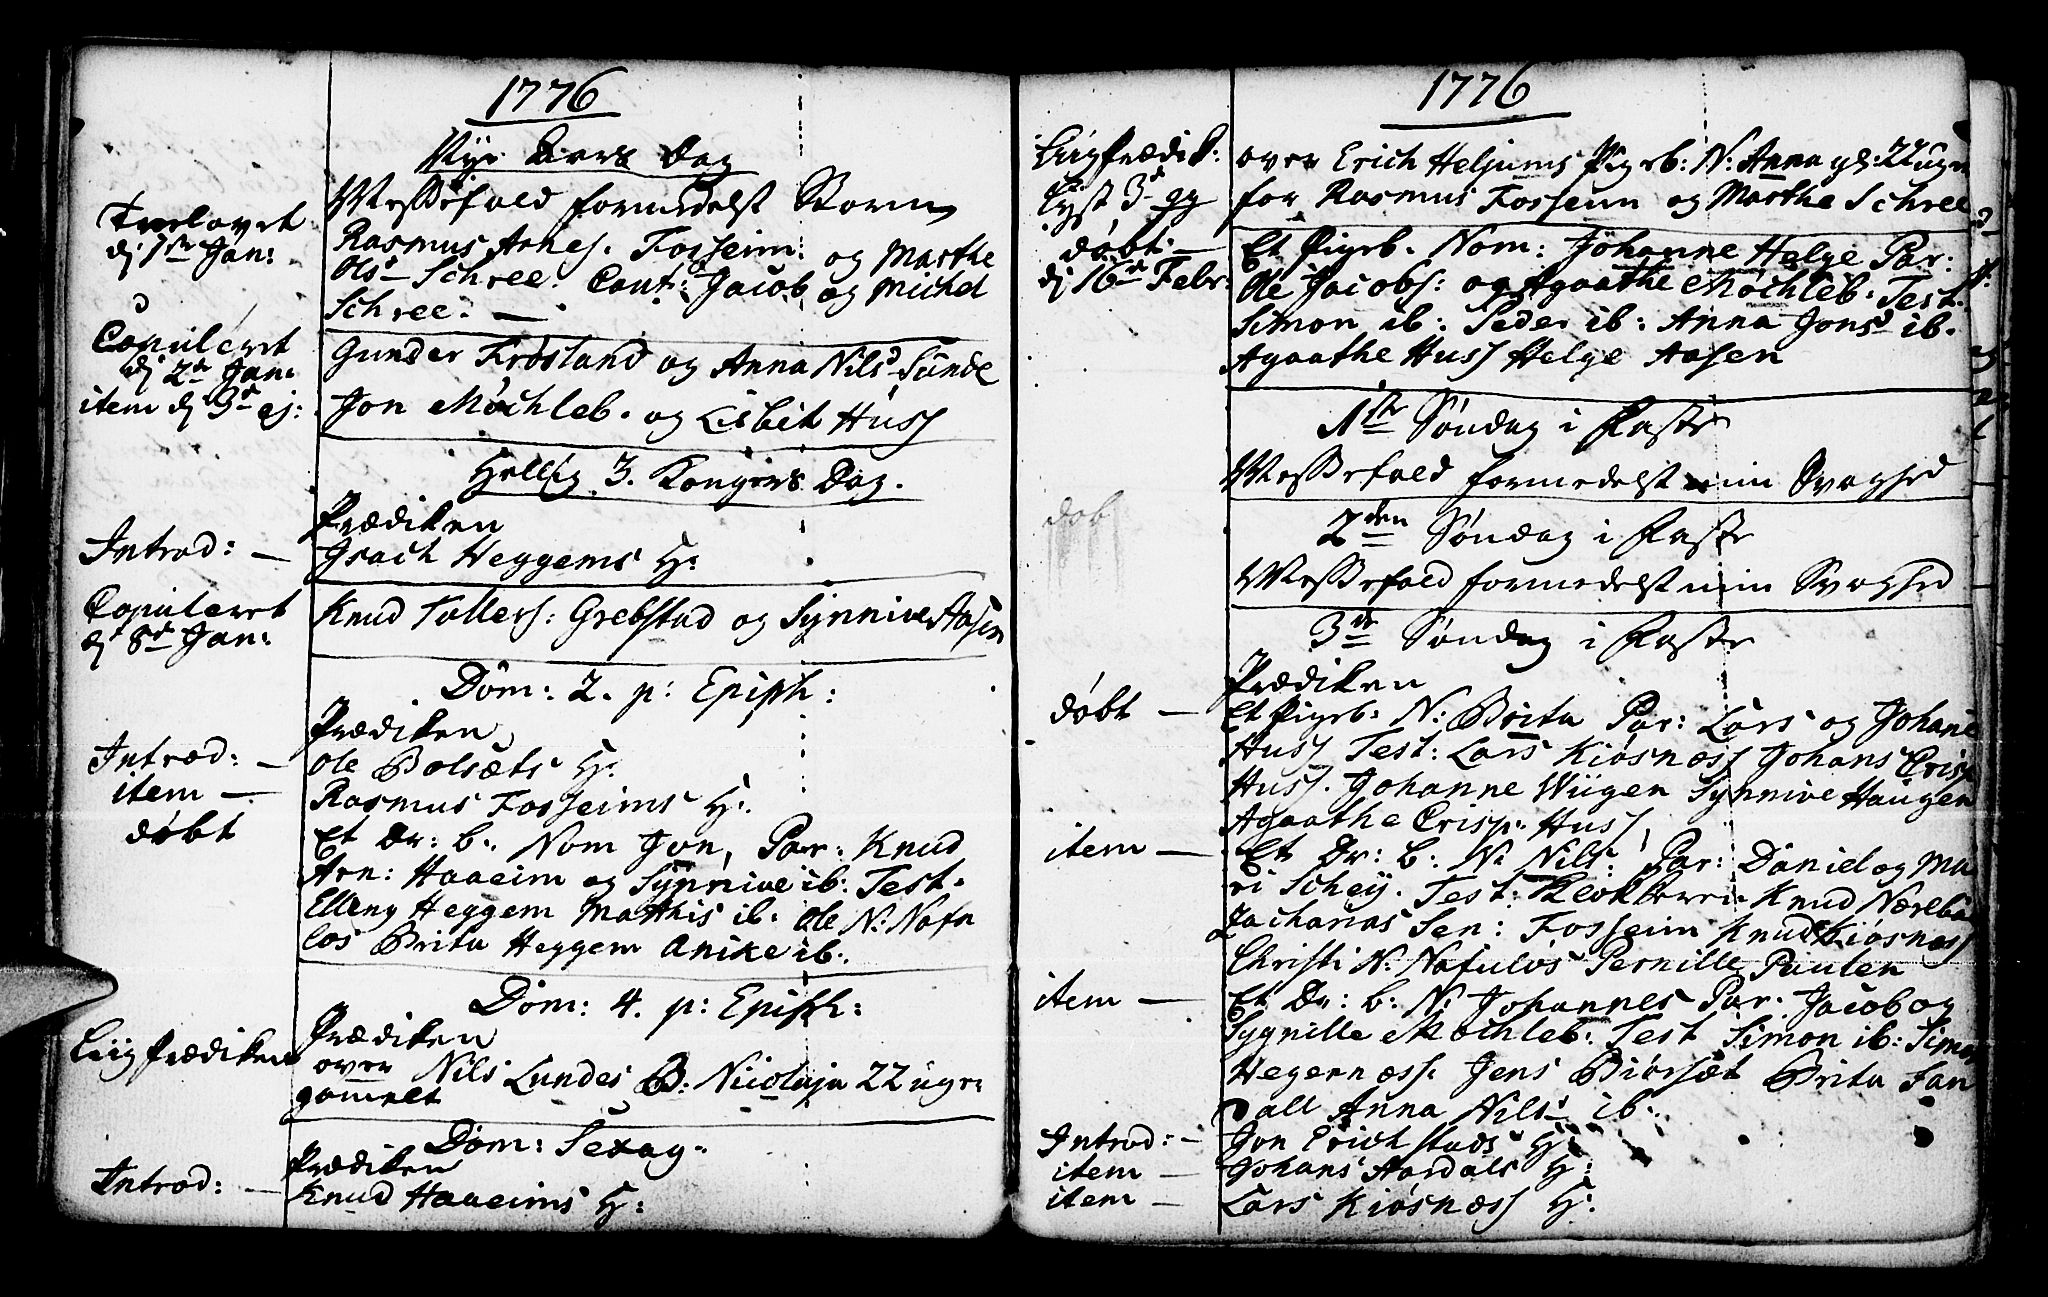 1776
Nyt Aars Dag
Messefald formedelst Storm
Trolovet
dj 1ste Jan:
Rasmus Arnes. Fosseim: og Marthe
Olsd Schree. Caut: Jacob og Michel
Schree: —
Copuleret
dj 2den Jan:
item dj 3d ej:
Gunder Frøsland og Anna Nilsd Sunde
Jon Møchleb. og Lisbet Huss
Hellig 3. Kongers Dag.
Prædiken
Introd: — Isach Heggems H:
Copuleret
dj 8d Jan:
Knud Tollers: Grebstad og Synnive Aasen
Dom: 2. p: Epiph:
Prædiken
Introd: — Ole Bolsæts H:
item — Rasmus Fosseims H:
døbt
Et Dr: b: Nom Jon, Par: Knud
Arn: Haaeim og Synnive ib: Test.
Elleng Heggem Matthis ib: Ole N: Nafu
los Brita Heggem Anike ib:
Dom: 4. p: Epiph:
Prædiken
Liigprædiken over Nils Lundes B: Nicolaja 22 uger
gammelt
Dom: Sexag.
Prædiken
Introd: — Knud Haaeims H:
1776
Liigprædik: over Erich Heljums Pigeb: N: Anna gl: 22 uger
Lyst 3d gg for Rasmus Fosseim og Marthe Schree
døbt: —
dj 16d Febr:
Et Pigeb. Nom: Johanne Helge Par:
Ole Jacobs: og Agaathe Møchleb. Test:
Simon ib: Peder ib: Anna Jonsd ib.
Agaathe Huss Helge Aasen
1ste Søndag i Faste
Messefald formedelst min Svaghed
døb
2den Søndag i Faste
Messefald formedelst min Svaghed
3de Søndag i Faste
Prædiken
døbt — Et Pigeb: N: Brita Par: Lars og Johane
Huss Test: Lars Kiøsness Johans Crisp
Huss. Johanne Wiigen Synnive Haugen
Agaathe Crisp. Huss
item — Et Dr: b: N: Nils. Par: Daniel og Ma
ri Scheij. Test: Klokkeren Knud Nærlbø
Zacharias Sen: Fosseim Knud Kiosness
Christi N: Nafulos Pernille Paulen
item — Et Dr: b: N: Johannes Par. Jacob og
Sygnille Møchleb. Test Simon ib: Simon
Hegerness. Jens Biørsæt Brita San
dall Anna Nilsd ib:
Introd: — Jon Erichstads H:
item — Johans Aardals H:
item — Lars Kiøsness H: